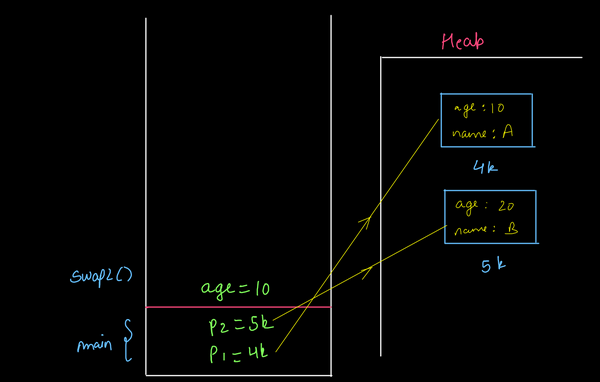 Heap
age : 10
name : A
4k
age : 20
name : B
5k
swap2()
age = 10
main
P2 = 5k
P1 = 4k